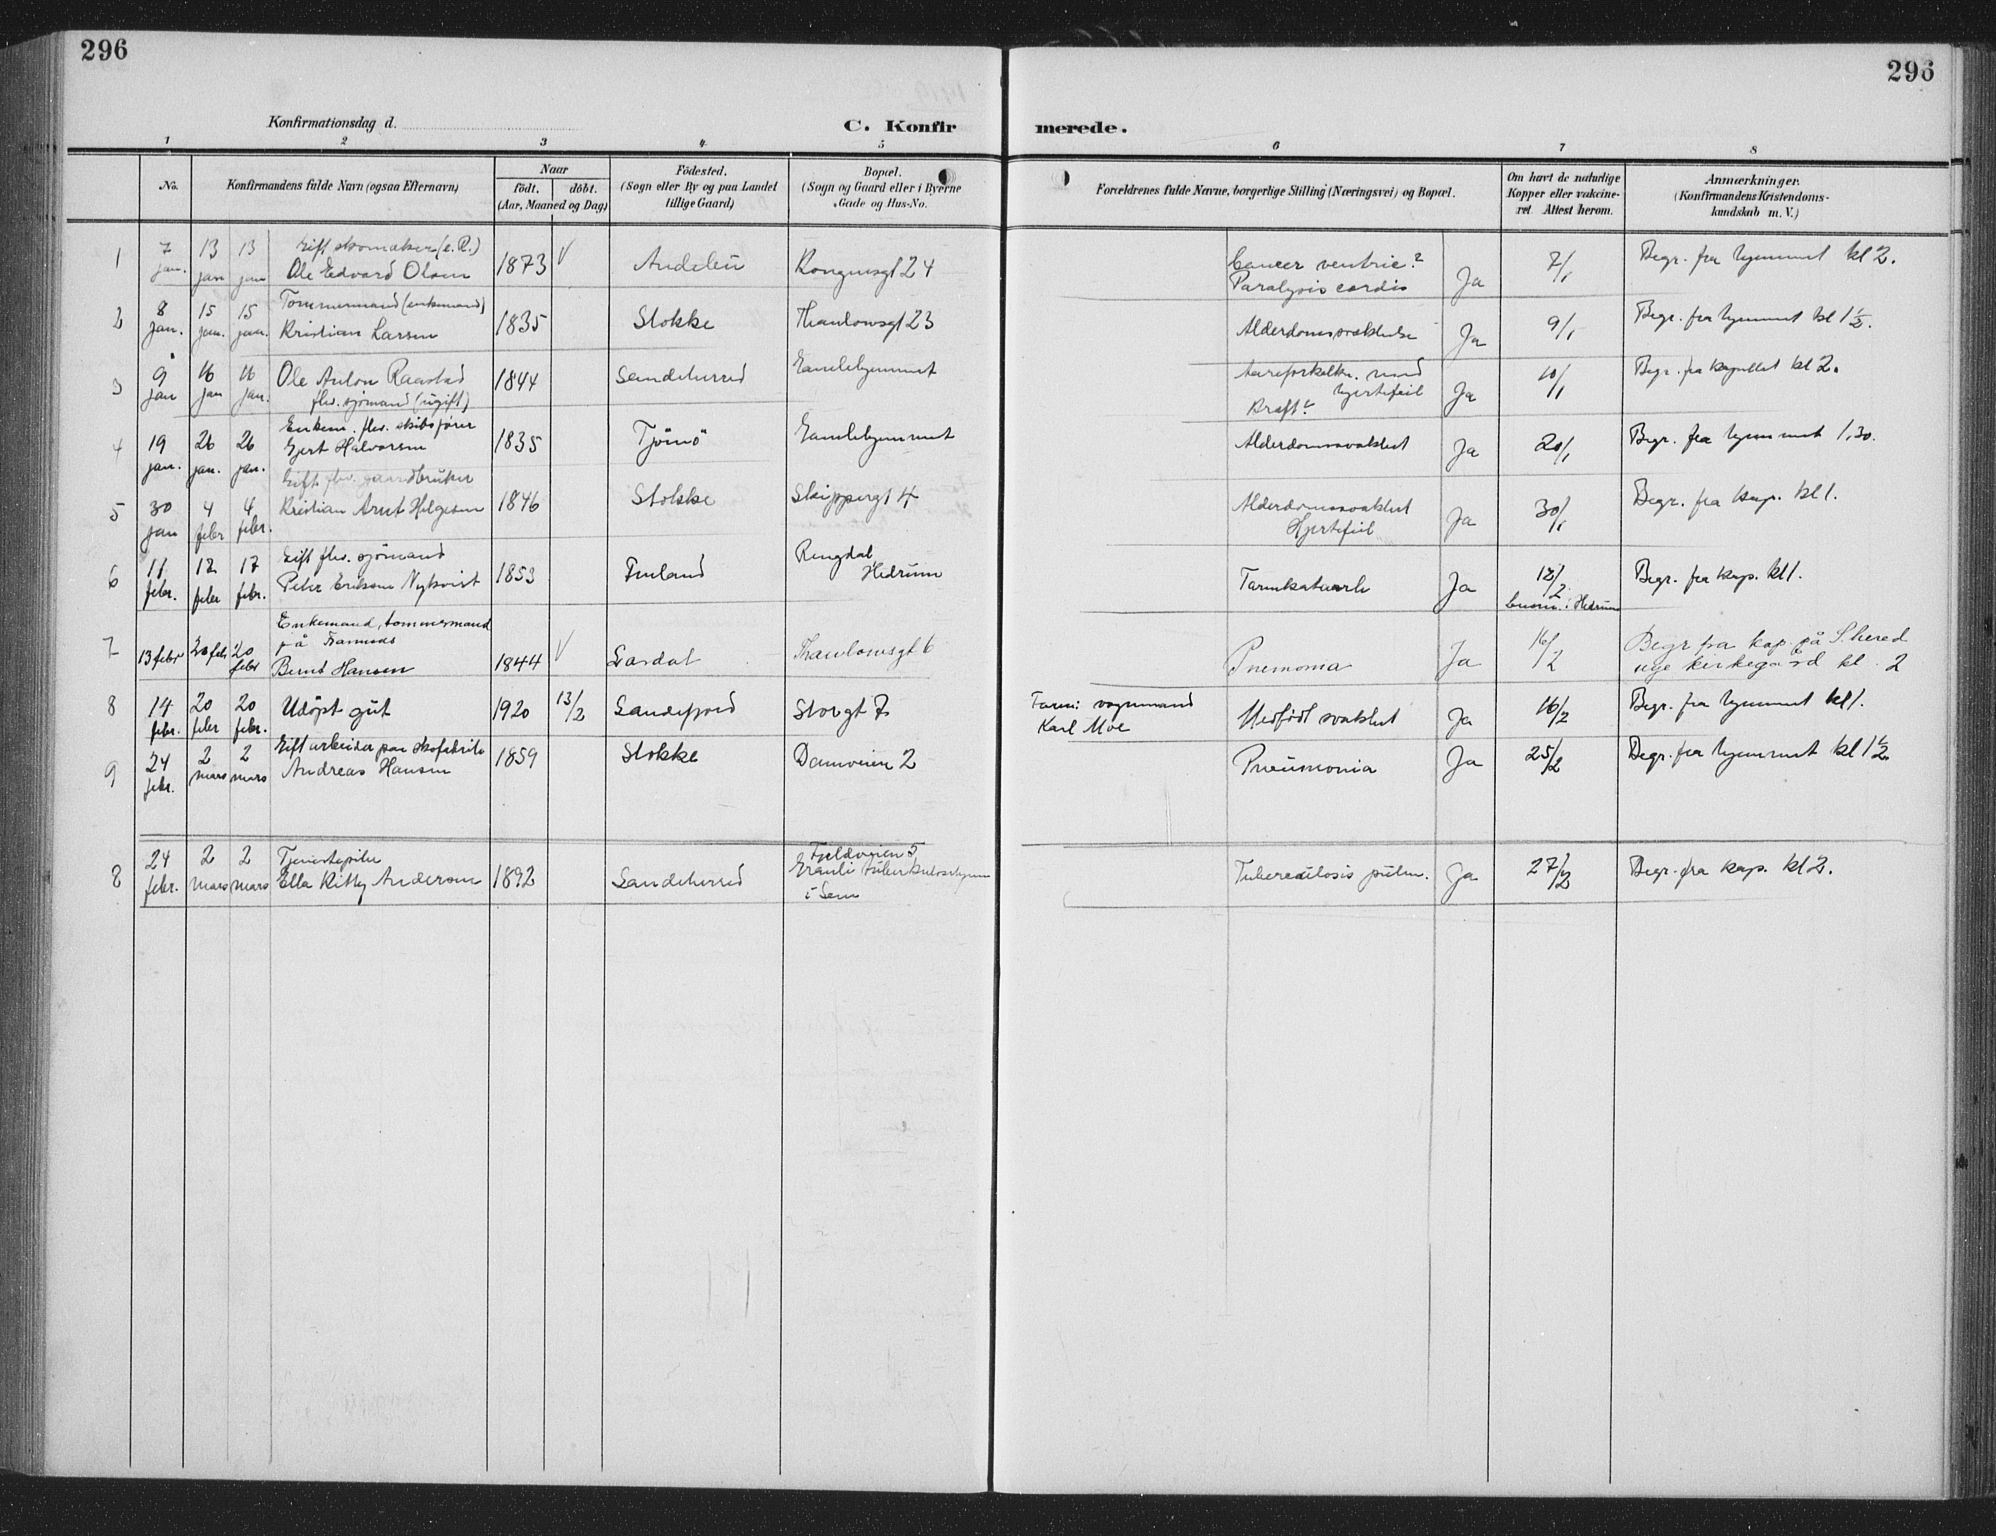 296
296
Konfirmationsdag d.
C. Konfir
merede.
1 2 3 4 5 6 7 8
No.
Konfirmandens fulde Navn (ogsaa Efternavn)
Naar
födt. döbt.
(Aar, Maaned og Dag)
Födested.
(Sogn eller By og paa Landet
tillige Gaard)
Bopæl.
(Sogn og Gaard eller i Byerne
Gade og Hus-No.
Forældrenes fulde Navne, borgerlige Stilling (Næringsvei) og Bopæl.
Om havt de naturlige
Kopper eller vakcine-
ret. Attest herom.
Anmærkninger.
(Konfirmandens Kristendoms-
kundskab m. V.)
1 7 jan. 13 jan 13 jan Gift skomaker (e.R.)
Ole Edvard Olsen 1873 V Andebu Kongensgt 24 Cancer ventric. ?
Paralysis cordis Ja 7/1 Begr. fra hjemmet kl 2.
2 8 jan. 15 jan. 15 jan. Tømmermand (enkemand)
Kristian Larsen 1835 Stokke Thaulowsgt 23 Alderdomssvakhelse Ja 9/1 Begr. fra hjemmet kl 1 1/2.
3 9 jan 16 jan 16 jan. Ole Anton Raastad
flv. sjömand (ugift) 1844 Sandeherred Gamlehjemmet Aareforkalkn. med
hjertefeil Ja 10/1 Begr. fra kapellet kl 2.
4 19 jan. 26 jan. 26 jan. Enkem. flv. skibsförer
Gjert Halvorsen 1835 Tjömö Gamlehjemmet Alderdomssvakhet Ja 20/1 Begr. fra hjemmet 1,30.
5 30 jan 4 febr 4 febr. Gift flv. gaardbruker
Kristian Arnt Helgesen 1846 Stokke Skippergt 4 Alderdomssvakhet
Hjertefeil Ja 30/1 Begr. fra kap. kl 1.
6 11 febr. 12 febr 17 febr. Gift flv. sjömand
Peter Eriksen Nykvist 1853 Finland Ringdal
Hedrum Tarmkatarrh Ja 12/2
i Hedrum Begr. fra kap. kl 1.
7 13 febr 20 feb 20 febr Enkemand, tømmermand
på Framnæs
Bernt Hansen 1844 V Lardal Thaulowsgt 6 Pnemonia Ja 16/2 Begr fra kap på S.hered
nye kirkegård kl. 2
8 14 febr. 20 febr 20 febr. Udöpt gut 1920 13/2 Sandefjord Storgt 7 Farm: vognmand
Karl Moe Medfödt svakhet Ja 16/2 Begr. fra hjemmet kl 1.
9 24 febr. 2 mars 2 mars Gift arbeider paa skofabrik
Andreas Hansen 1859 Stokke Damveien 2 Pneumonia Ja 25/2 Begr. fra hjemmet kl 1 1/2.
8 24 febr. 2 mars 2 mars Tjenestepike
Ella Kitty Andersen 1892 Sandeherred Fjeldveien 5
Granli tuberkulosehjem
i Sem Tuberculosis pulm. Ja 27/2 Begr. fra kap. kl 2.